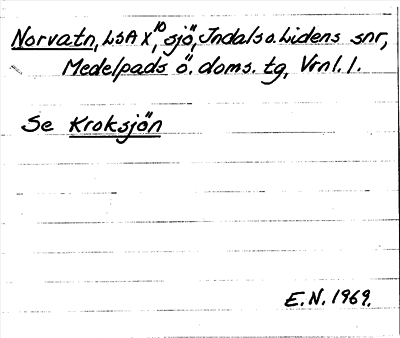 Norvatn, LSA X, 10 sjö, Indals o. Lidens snr,
Medelpads ö. doms. tg, Vrnl. l.
Se Kroksjön
E.N. 1969.